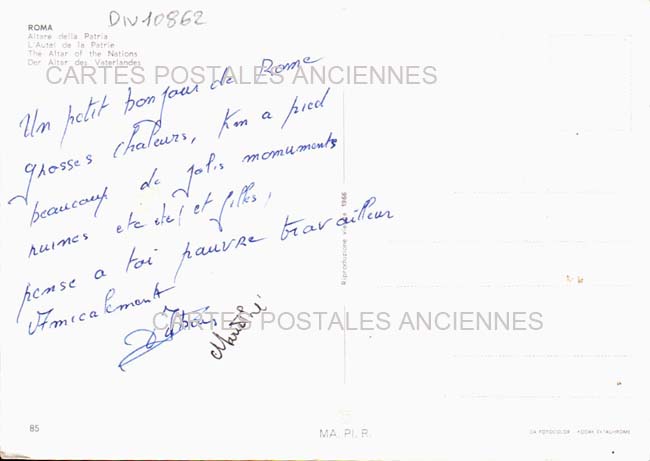 DIV10862
ROMA
Altare della Patria
L'Autel de la Patrie
The Altar of the Nations
Der Altar des Vaterlandes
CARTES POSTALES ANCIENNES
Un petit bonjour de Rome
grosses chaleurs, Km a pied
beaucoup de jolis monuments
ruines etc etc! et filles,
pense a toi pauvre travailleur
Amicalement
CARTES POSTALES ANCIENNES
Riproduzione vietata 1966
85
MA. PI. R.
KODAK EKTACHROME